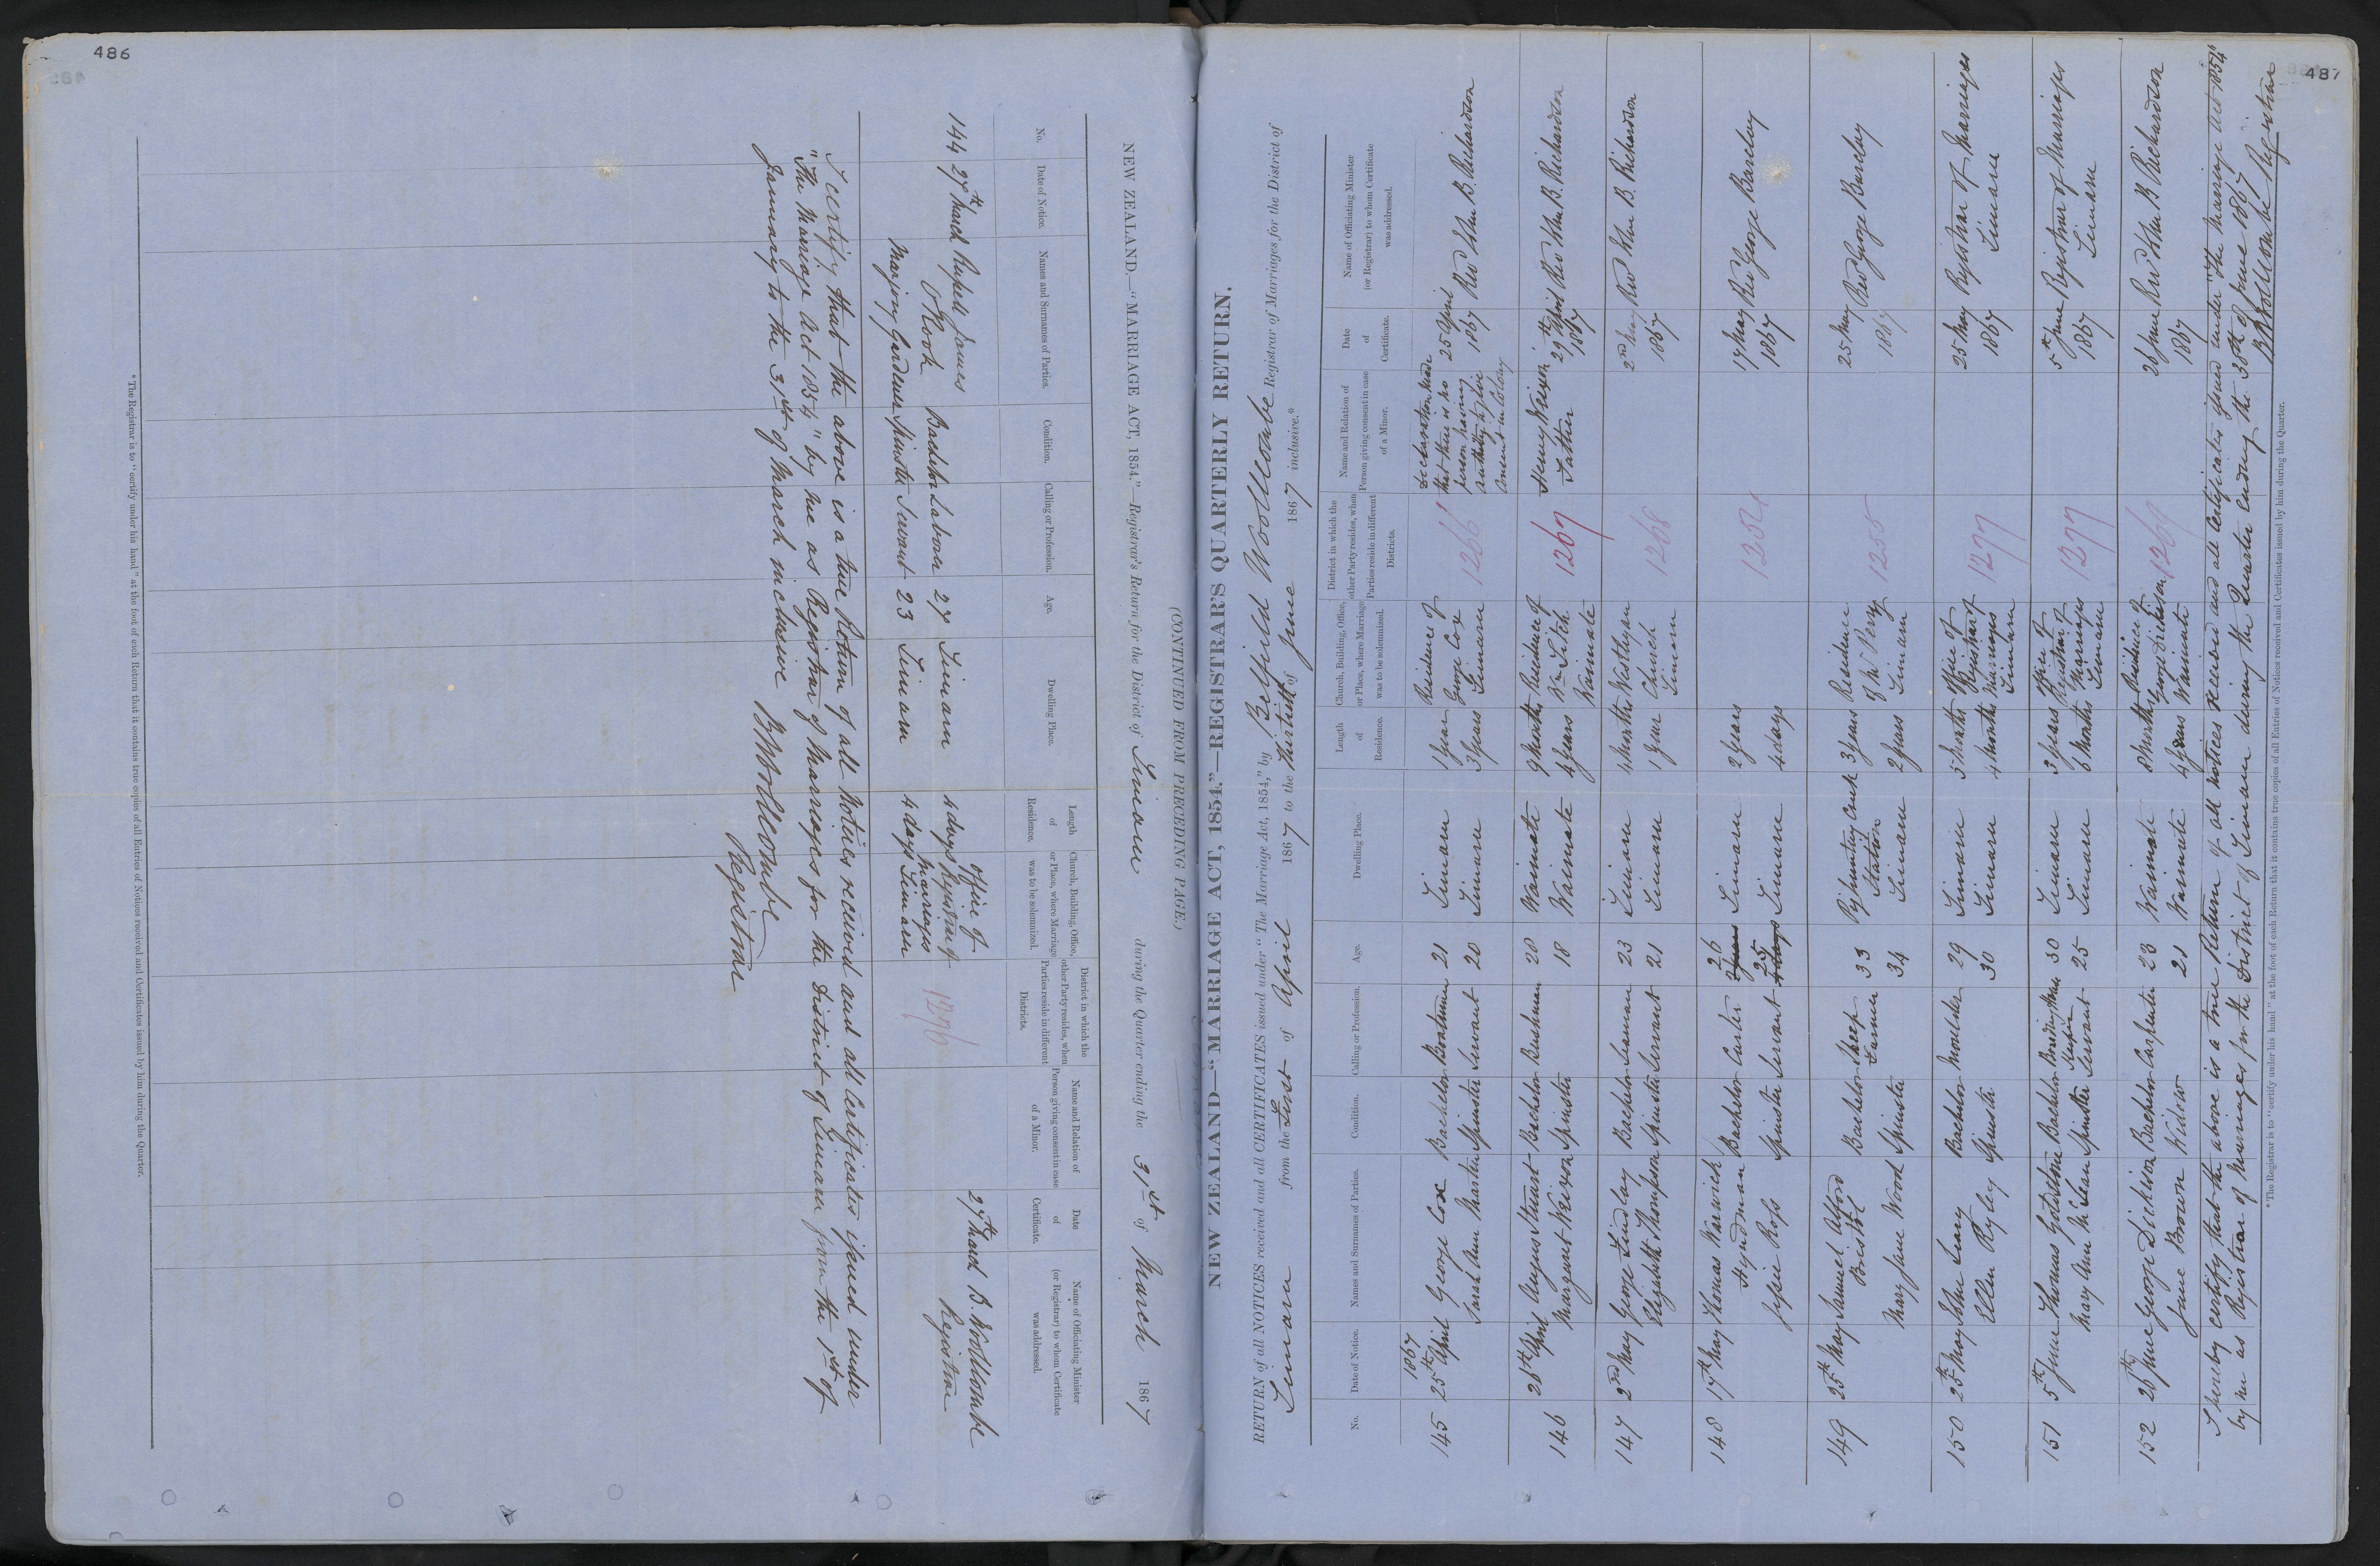 486
(CONTINUED FROM PRECEDING PAGE.)
NEW ZEALAND.—"MARRIAGE ACT, 1854."—Registrar's Return for the District of Timaru during the Quarter ending the 31st of March 1867
No. Date of Notice. Names and Surnames of Parties. Condition. Calling or Profession. Age. Dwelling Place. Length of Residence. Church, Building, Office, or Place, where Marriage was to be solemnized. District in which the other Party resides, when Parties reside in different Districts. Name and Relation of Person giving consent in case of a Minor. Date of Certificate. Name of Officiating Minister (or Registrar) to whom Certificate was addressed.
144 27th March Russell James Hook Bachelor Labourer 27 Timaru 4 days Office of Registrar of Marriages Timaru 1276 27th March B. Woollcombe Registrar
Marjory Gardener Spinster Servant 23 Timaru 4 days
I certify that the above is a true Return of all Notices received and all Certificates issued under
"The Marriage Act 1854" by me as Registrar of Marriages for the District of Timaru from the 1st of
January to the 31st of March inclusive B Woollcombe
Registrar
* The Registrar is to "certify under his hand" at the foot of each Return that it contains true copies of all Entries of Notices received and Certificates issued by him during the Quarter.
487
NEW ZEALAND—"MARRIAGE ACT, 1854."—REGISTRAR'S QUARTERLY RETURN.
RETURN of all NOTICES received and all CERTIFICATES issued under "The Marriage Act, 1854," by Belfield Woollcombe Registrar of Marriages for the District of
Timaru from the First of April 1867 to the thirtieth of June 1867 inclusive.*
No. Date of Notice. Names and Surnames of Parties. Condition. Calling or Profession. Age. Dwelling Place. Length of Residence. Church, Building, Office, or Place, where Marriage was to be solemnized. District in which the other Party resides, when Parties reside in different Districts. Name and Relation of Person giving consent in case of a Minor. Date of Certificate. Name of Officiating Minister (or Registrar) to whom Certificate was addressed.
1867
145 25th April George Cox Bachelor Boatman 21 Timaru 1 year Residence of George Cox Timaru 1266 Declaration made that there is no person having authority to give consent in Colony 25 April 1867 Rev John B. Richardson
Sarah Ann Marsten Spinster Servant 20 Timaru 3 years
146 28th April Angus Stuart Bachelor Bushman 20 Waimate 9 months Residence of Wm Fitch Waimate 1267 Henry Neizon Father 29th April 1867 Rev John B. Richardson
Margaret Neizon Spinster 18 Waimate 4 years
147 2nd May George Findlay Bachelor Seaman 23 Timaru 4 months Westleyan Church Timaru 1268 2nd May 1867 Rev John B. Richardson
Elizabeth Thompson Spinster Servant 21 Timaru 1 year
148 17th May Thomas Warwick Hyndman Bachelor Carter 26 Timaru 2 years 1254 17 May 1867 Rev George Barclay
Jessie Ross Spinster Servant 25 Timaru 4 days
149 25th May Samuel Alford Bristol Bachelor Sheep Farmer 33 Station 3 years Residence of Mr Perry Timaru 1255 25 May 1867 Rev George Barclay
Mary Jane Wood Spinster 34 Timaru 2 years
150 25th May John Leary Bachelor Moulder 29 Timaru 5 months Office of Registrar of Marriages Timaru 1277 25 May 1867 Registrar of Marriages Timaru
Ellen Ryley Spinster 30 Timaru 4 months
151 5th June Thomas Goldstone Bachelor Boardinghouse Keeper 30 Timaru 3 years Office of Registrar of Marriages Timaru 1277 5th June 1867 Registrar of Marriages Timaru
Mary Ann McLean Spinster Servant 25 Timaru 6 months
152 26th June George Dickison Bachelor Carpenter 23 Waimate 8 months Residence of George Dickison Waimate 1269 26 June 1867 Rev John B Richardson
Jane Brown Widow 21 Waimate 4 years
I hereby certify that the above is a true Return of all notices received and all Certificates issued under "the Marriage Act 1854"
by me as Registrar of Marriages for the District of Timaru during the Quarter ending the 30th of June 1867
B Woollcombe Registrar
* The Registrar is to "certify under his hand" at the foot of each Return that it contains true copies of all Entries of Notices received and Certificates issued by him during the Quarter.